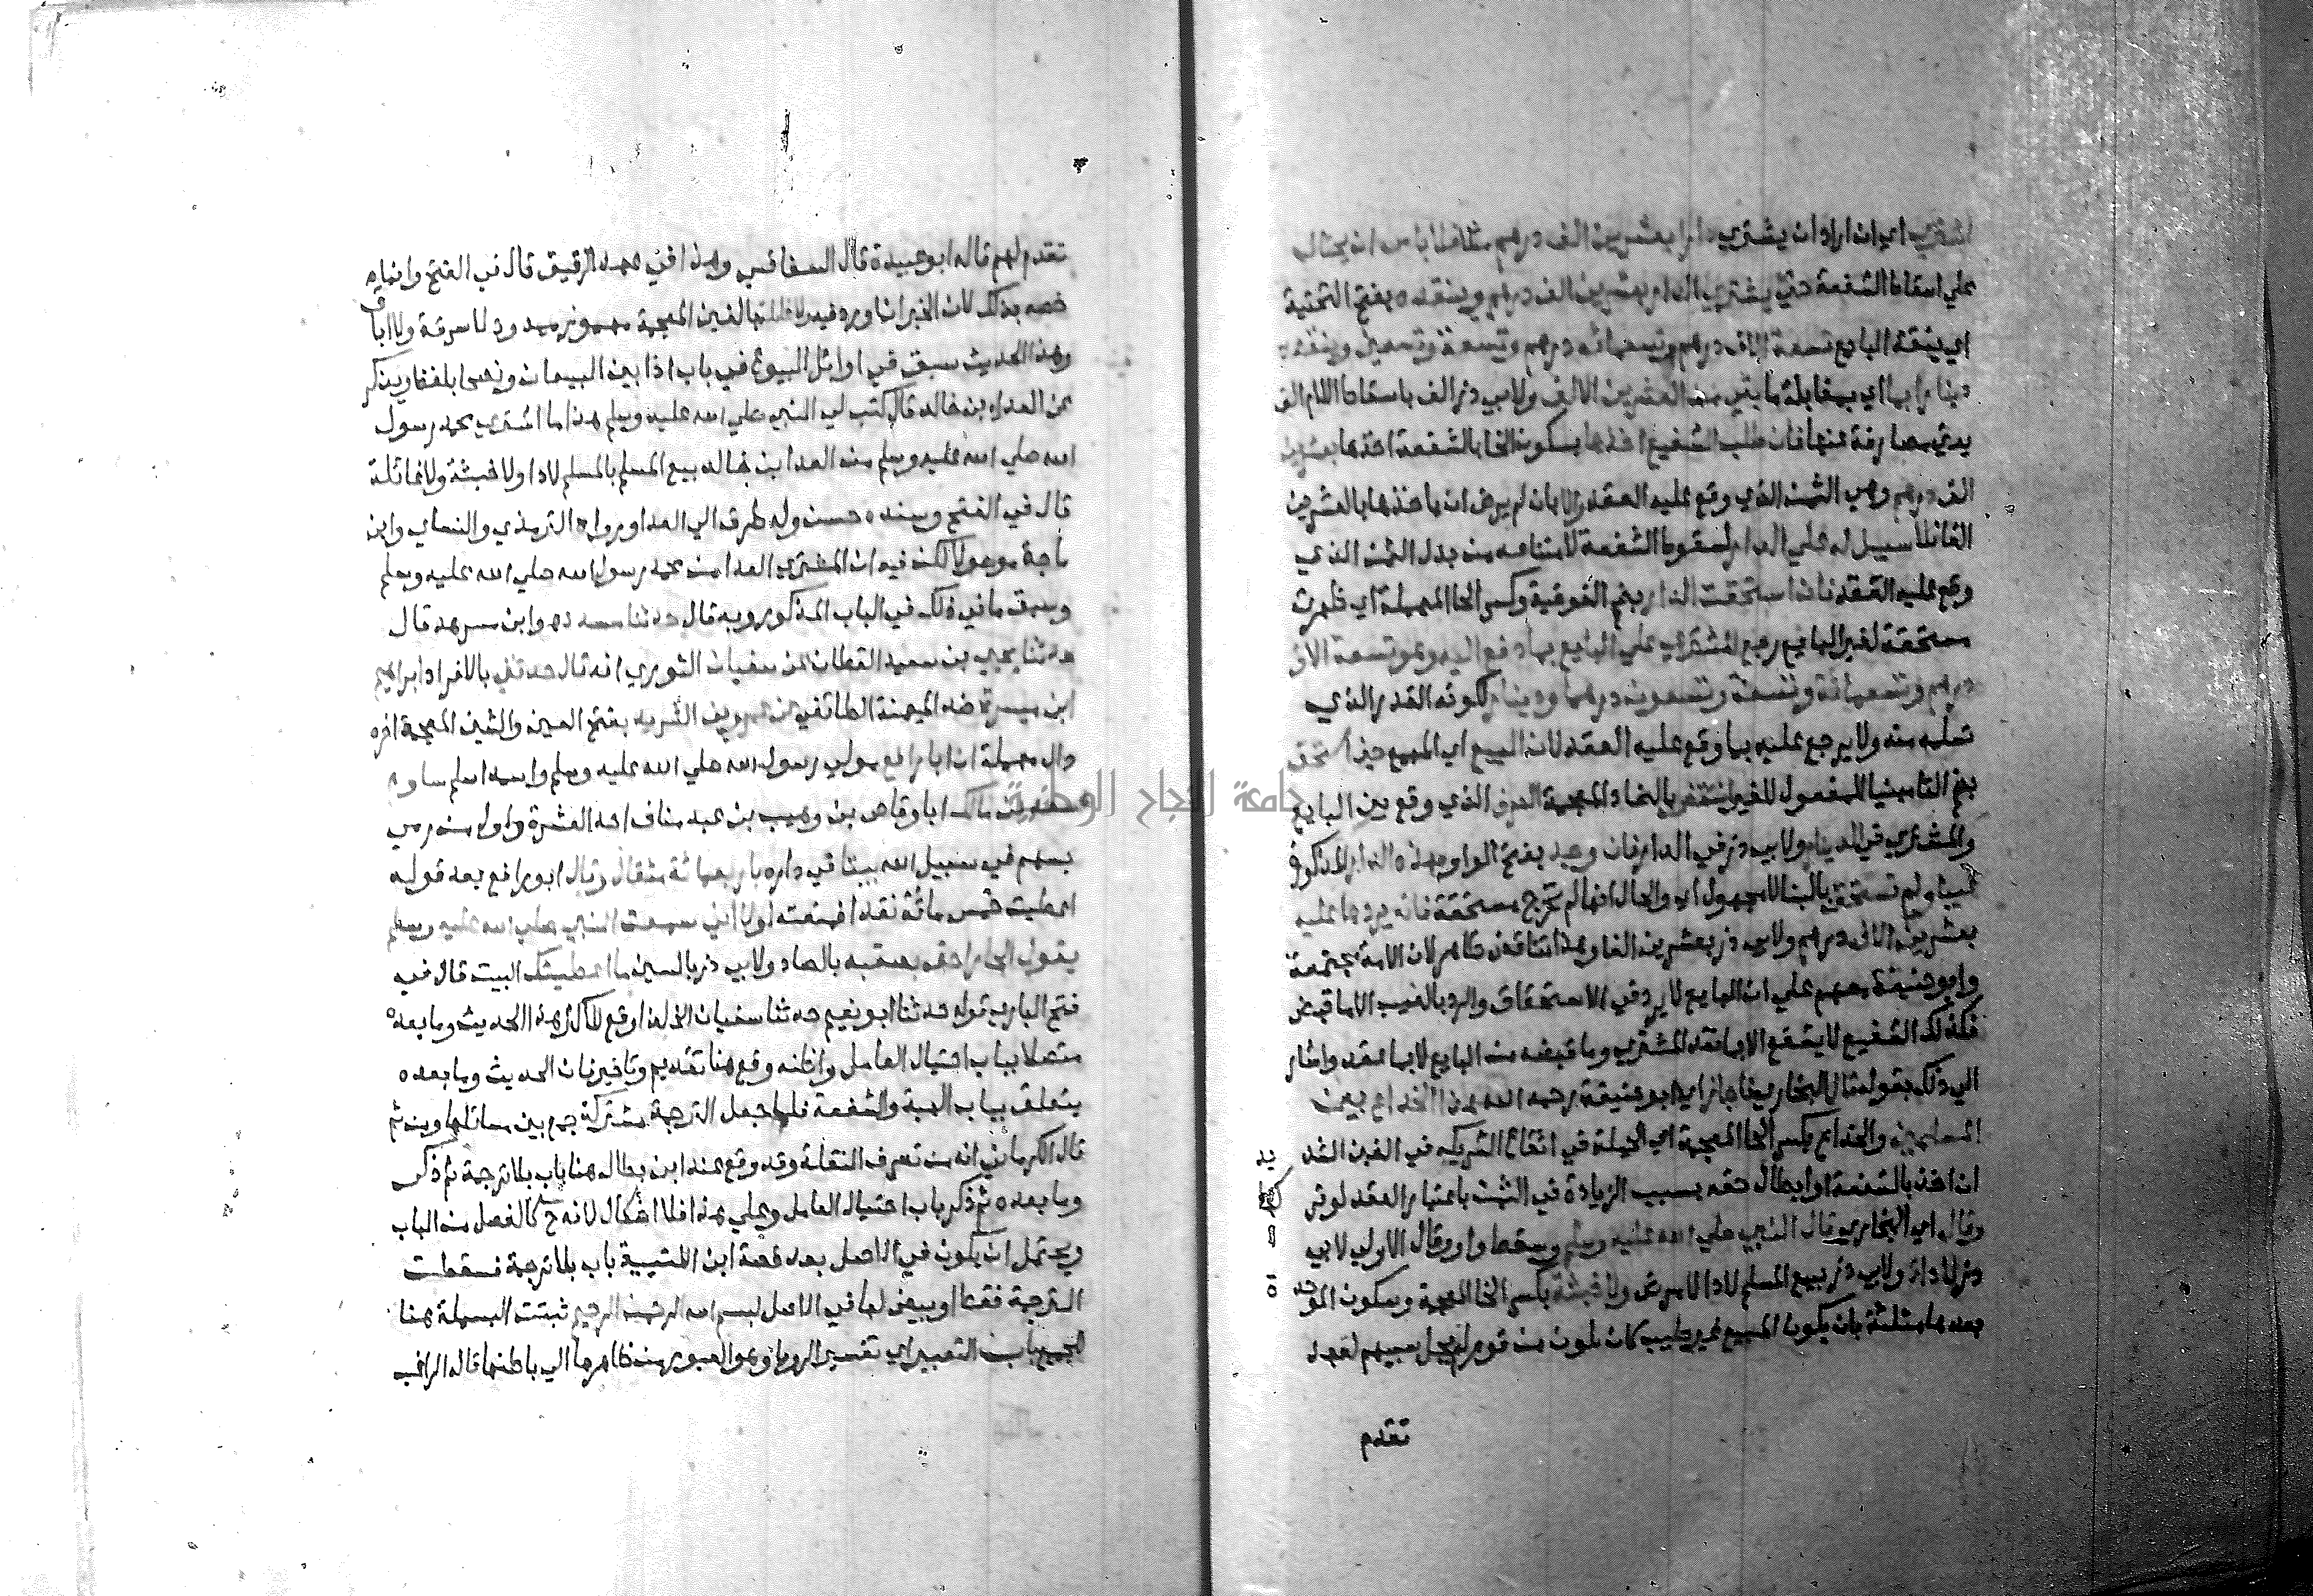 اشتري اي ان اراد ان يشتري دارا بعشرين الف درهم مثلا فلا باس ان يحتال
علي اسقاط الشفعة حتي يشتري الدار بعشرين الف درهم وينقده بفتح التحتية
اي ينقد البايع تسعة الاف درهم وتسعمائه درهم وتسعة وتسعين وينقده
دينارا بما اي بمقابلة ما بقي من العشرين الالف ولابي ذر الف باسقاط اللام الف
يعني مصارفة عنها فان طلب الشفيع اخذها بسكون الخا بالشفعة اخذها بعشرين
الف درهم وهي الثمن الذي وقع عليه العقد والا بان لم يرض ان ياخذها بالعشرين
الفا فلا سبيل له علي الدار لسقوط الشفعة لامتناعه من بدل الثمن الذي
وقع عليه العقد فان استحقت الدار بضم الفوقية وكسر الحا المهملة اي ظهرت
مستحقة لغير البايع رجع المشتري علي البايع بما دفع اليه وهو تسعة الاف
درهم وتسعمائة وتسعة وتسعون درهما ودينار لكونه القدر الذي
تسلمه منه ولا يرجع عليه بما وقع عليه العقد لان البيع اي المبيع حين استحق
بضم التا مبنيا للمفعول للغير انتقض بالضاد المعجمة الصرف الذي وقع بين البايع
والمشتري في الدينار ولابي ذر في الدار فان وجد بفتح الواو بهذه الدار المذكورة
عيبا ولم تستحق بالبنا للمجهول اي والحال انها لم تخرج مستحقة فانه يردها عليه
بعشرين الف درهم ولابي ذر بعشرين الفا وهذا تناقض ظاهر لان الامة مجتمعة
وابو حنيفة معهم علي ان البايع لا يرد في الاستحقاق والرد بالعيب الا ما قبض
فكذلك الشفيع لا يشفع الا بما نقد المشتري وما قبضه من البايع لا بما عقد واشار
الي ذلك بقوله قال البخاري فاجاز اي ابو حنيفة رحمه الله هذا الخداع بين
المسلمين والخداع بكسر الخا المعجمة اي الحيلة في ايقاع الشريك في الغبن الشديد
ان اخذ بالشفعة او ابطال حقه بسبب الزيادة في الثمن باعتبار العقد لو ترك
وقال اي البخاري قال النبي صلي الله عليه وسلم وسقط واو وقال الاولي لابي
ذر لا دا ولابي ذر بيع المسلم لا دا لا مرض ولا خبثة بكسر الخا المعجمة وسكون الموحده
بعدها مثلثة بان يكون المبيع غير طيب كان يكون من قوم لم يحل سبيهم لعهد
تقدم
تقدم لهم قاله ابو عبيدة قال السفاقسي وهذا في عهدة الرقيق قال في الفتح وانما
خصه بذلك لان الخبر انما ورد فيه ولا غائلة بالغين المعجمة مهموز ممدود لا سرقة ولا اباق
وهذا الحديث سبق في اوائل البيوع في باب اذا بين البيعان ونصحا بلفظ ويذكر
عن العداء بن خالد قال كتب لي النبي صلي الله عليه وسلم هذا ما اشتري محمد رسول
الله صلي الله عليه وسلم من العدا بن خالد بيع المسلم بالمسلم لا دا ولا خبثة ولا غائلة
قال في الفتح وسنده حسن وله طرق الي العدا ورواه الترمذي والنسائي وابن
ماجة موصولا لكن فيه ان المشتري العدا من محمد رسول الله صلي الله عليه وسلم
وسبق ما في ذلك في الباب المذكور وبه قال حدثنا مسدد هو ابن مسرهد قال
حدثنا يحيي بن سعيد القطان عن سفيان الثوري انه قال حدثني بالافراد ابراهيم
ابن ميسرة ضد الميمنة الطائفي عن عمرو بن الشريد بفتح المعجمة اخره
دال مهملة ان ابا رافع مولي رسول الله صلي الله عليه وسلم واسمه اسلم ساوم
سعد بن مالك ابا وقاص بن وهيب بن عبد مناف احد العشرة واول من رمي
بسهم في سبيل الله بيتا في داره باربعمائة مثقال وقال ابو رافع بعد قوله
اعطيت خمس مائة نقدا فمنعته لولا اني سمعت النبي صلي الله عليه وسلم
يقول الجار احق بصقبه بالصاد ولابي ذر بالسين ما اعطيتك البيت قال في
فتح الباري قوله حدثنا ابو نعيم حدثنا سفيان الخ كذا وقع للاكثر هذا الحديث وما بعده
متصلا بباب احتيال العامل واظنه وقع هنا تقديم وتاخير فان الحديث وما بعده
يتعلق بباب الهبة والشفعة فلما جعل الترجمة مشتركة جمع بين مسائلها ومن ثم
قال الكرماني انه من تصرف النقلة وقد وقع عند ابن بطال هنا باب بلا ترجمة ثم ذكر
وما بعده ثم ذكر باب احتيال العامل وعلي هذا فلا اشكال لانه ح كالفصل من الباب
ويحتمل ان يكون في الاصل بعد قصة ابن اللتبية باب بلا ترجمة فسقطت
الترجمة فقط او بيض لها في الاصل بسم الله الرحمن الرحيم ثبتت البسملة هنا
للجميع باب التعبير اي تفسير الرويا وهو العبور من ظاهرها الي باطنها قاله الراغب
جامعة النجاح الوطنية